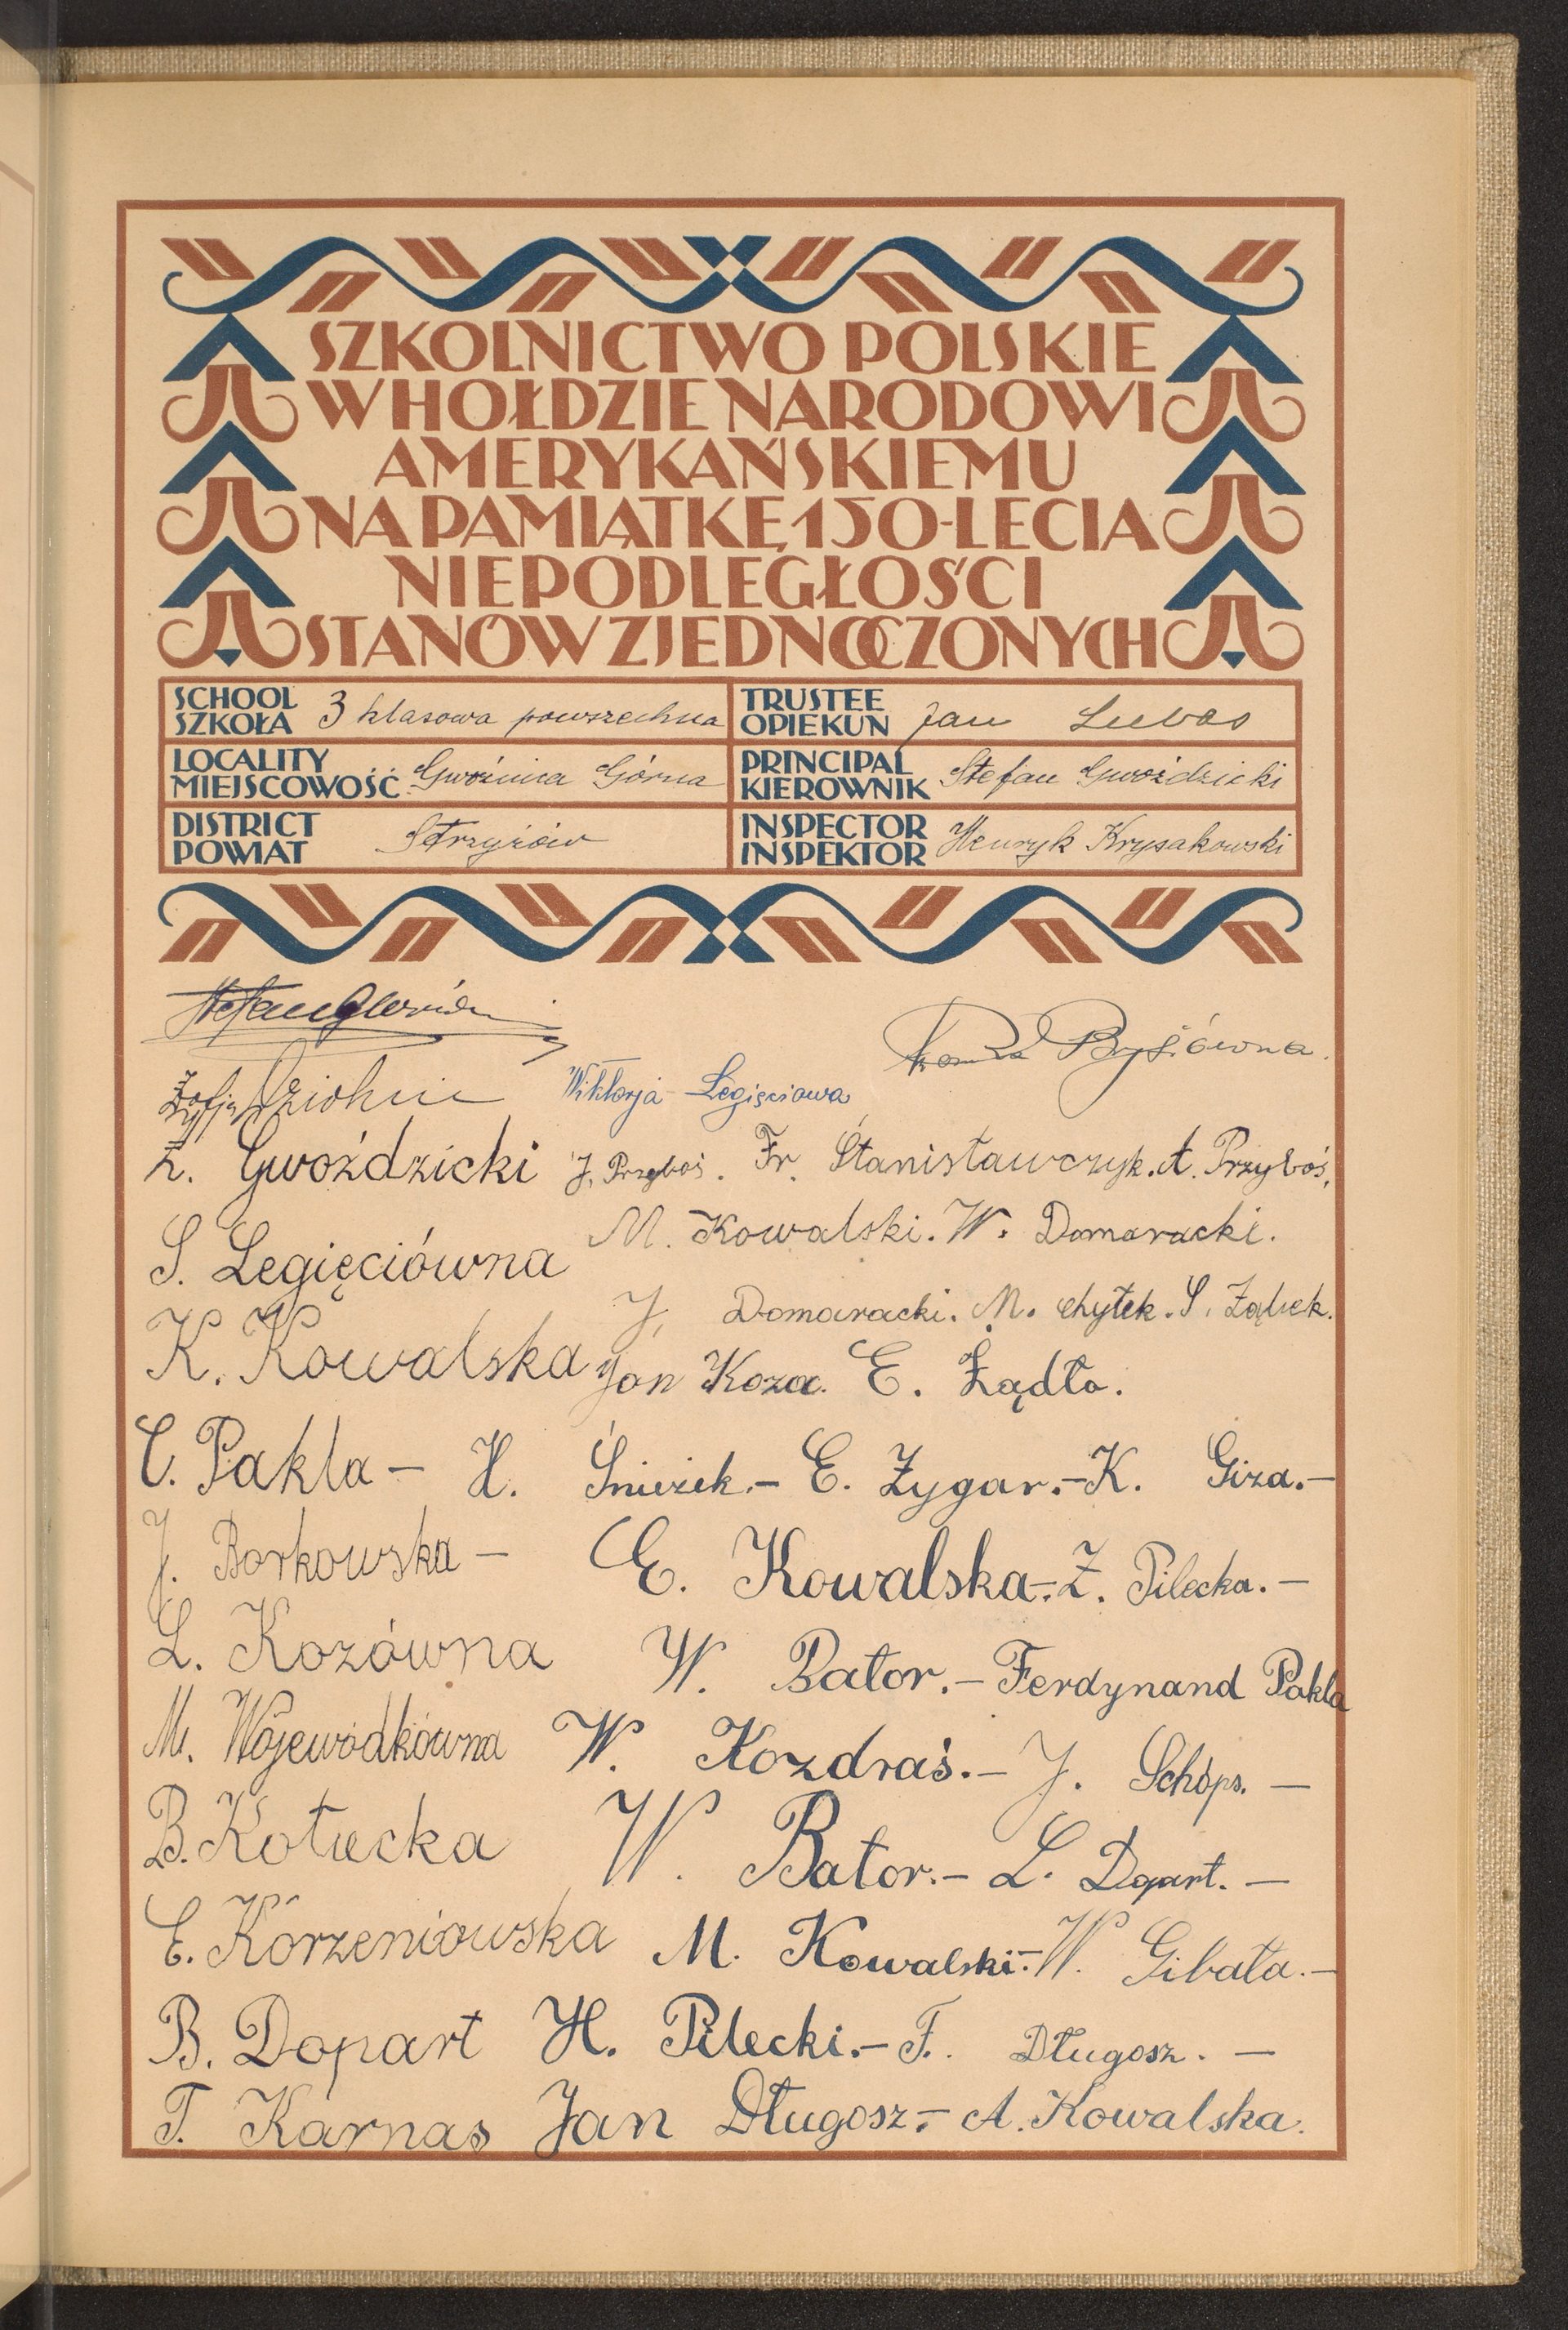 SZKOLNICTWO POLSKIE
W HOŁDZIE NARODOWI
AMERYKAŃSKIEMU
NA PAMIĄTKĘ 150-LECIA
NIEPODLEGŁOŚCI
STANÓW ZJEDNOCZONYCH
SCHOOL
SZKOŁA 3 klasowa powszechna
TRUSTEE
OPIEKUN Jan Lubas
LOCALITY
MIEJSCOWOŚĆ Gwoźnica Górna
PRINCIPAL
KIEROWNIK Stefan Gwoździcki
DISTRICT
POWIAT Strzyżów
INSPECTOR
INSPEKTOR Henryk Krysakowski
Stefan
Brysiówna.
Zofja Wiktorja Legięciowa
Z. Gwoździcki J. Przyboś. Fr. Stanisławczyk. A. Przyboś,
M. Kowalski. W. Domaracki.
S. Legięciówna
J. Domaracki. M. Chytek. S. Ząbek.
K. Kowalska Jan Koza. E. Żądło.
C. Pakla - H. Śnieżek. - E. Zygar. - K. Giza. -
J. Borkowska - E. Kowalska. - Z. Pilecka. -
L. Kozówna W. Bator. - Ferdynand Pakla
M. Wojewódkówna W. Kozdraś. - J. Schöps. -
B. Kotucka W. Bator. - L. Dopart. -
E. Korzeniowska M. Kowalski. - W. Gibała. -
B. Dopart H. Pilecki. - F. Długosz. -
T. Karnas Jan Długosz. - A. Kowalska.